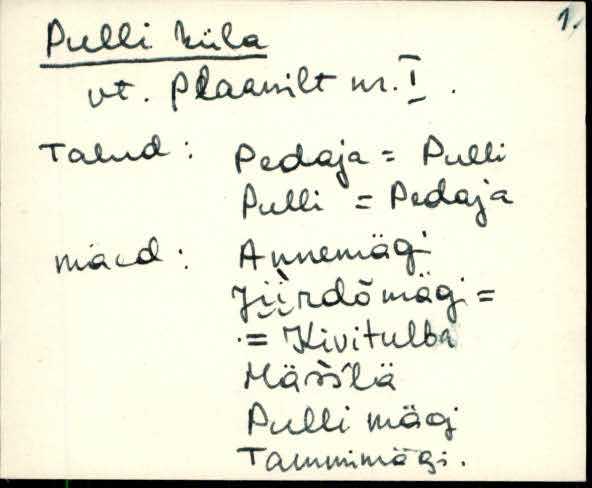 1.
Pulli küla
vt. plaanilt nr. I.
Talud: Pedaja = Pulli
Pulli = Pedaja
mäed: Annemägi
Jiirdõmägi =
= Kivitulba
Pulli mägi
Tammimägi.